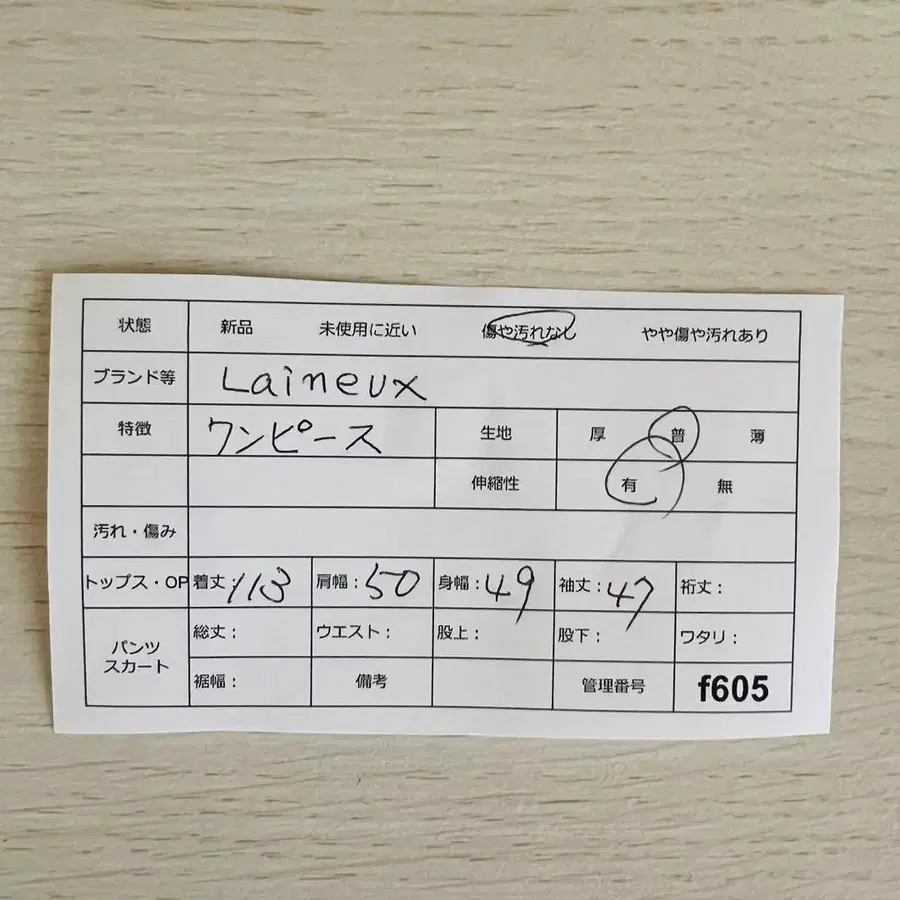 状態 新品 未使用に近い 傷や汚れなし やや傷や汚れあり
ブランド等 Laineux
特徴 ワンピース 生地 厚 普 薄
伸縮性 有 無
汚れ・傷み
トップス・OP 着丈:113 肩幅:50 身幅:49 袖丈:47 裄丈:
パンツ スカート 総丈: ウエスト: 股上: 股下: ワタリ:
裾幅: 備考 管理番号 f605